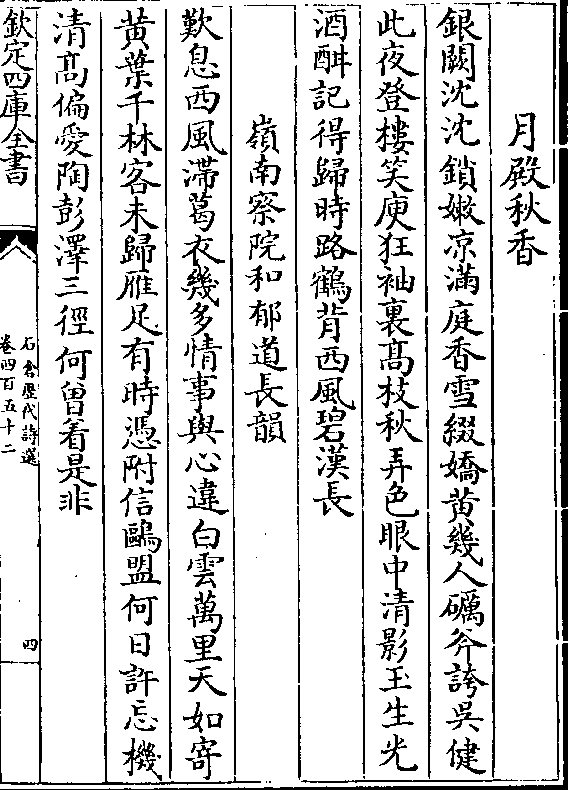 月殿秋香
銀闕沈沈鎖嫩凉滿庭香雪綴嬌黄幾人礪斧誇吳健
此夜登樓笑庾狂袖裏髙枝秋弄色眼中清影玉生光
酒酣記得歸時路鶴背西風碧漢長
嶺南察院和郁道長韻
歎息西風滯葛衣幾多情事與心違白雲萬里天如寄
黄葉千林客未歸雁足有時憑附信鷗盟何日許忘機
清髙偏愛陶彭澤三徑何曾着是非
欽定四庫全書
石倉歴代詩選
卷四百五十二
四